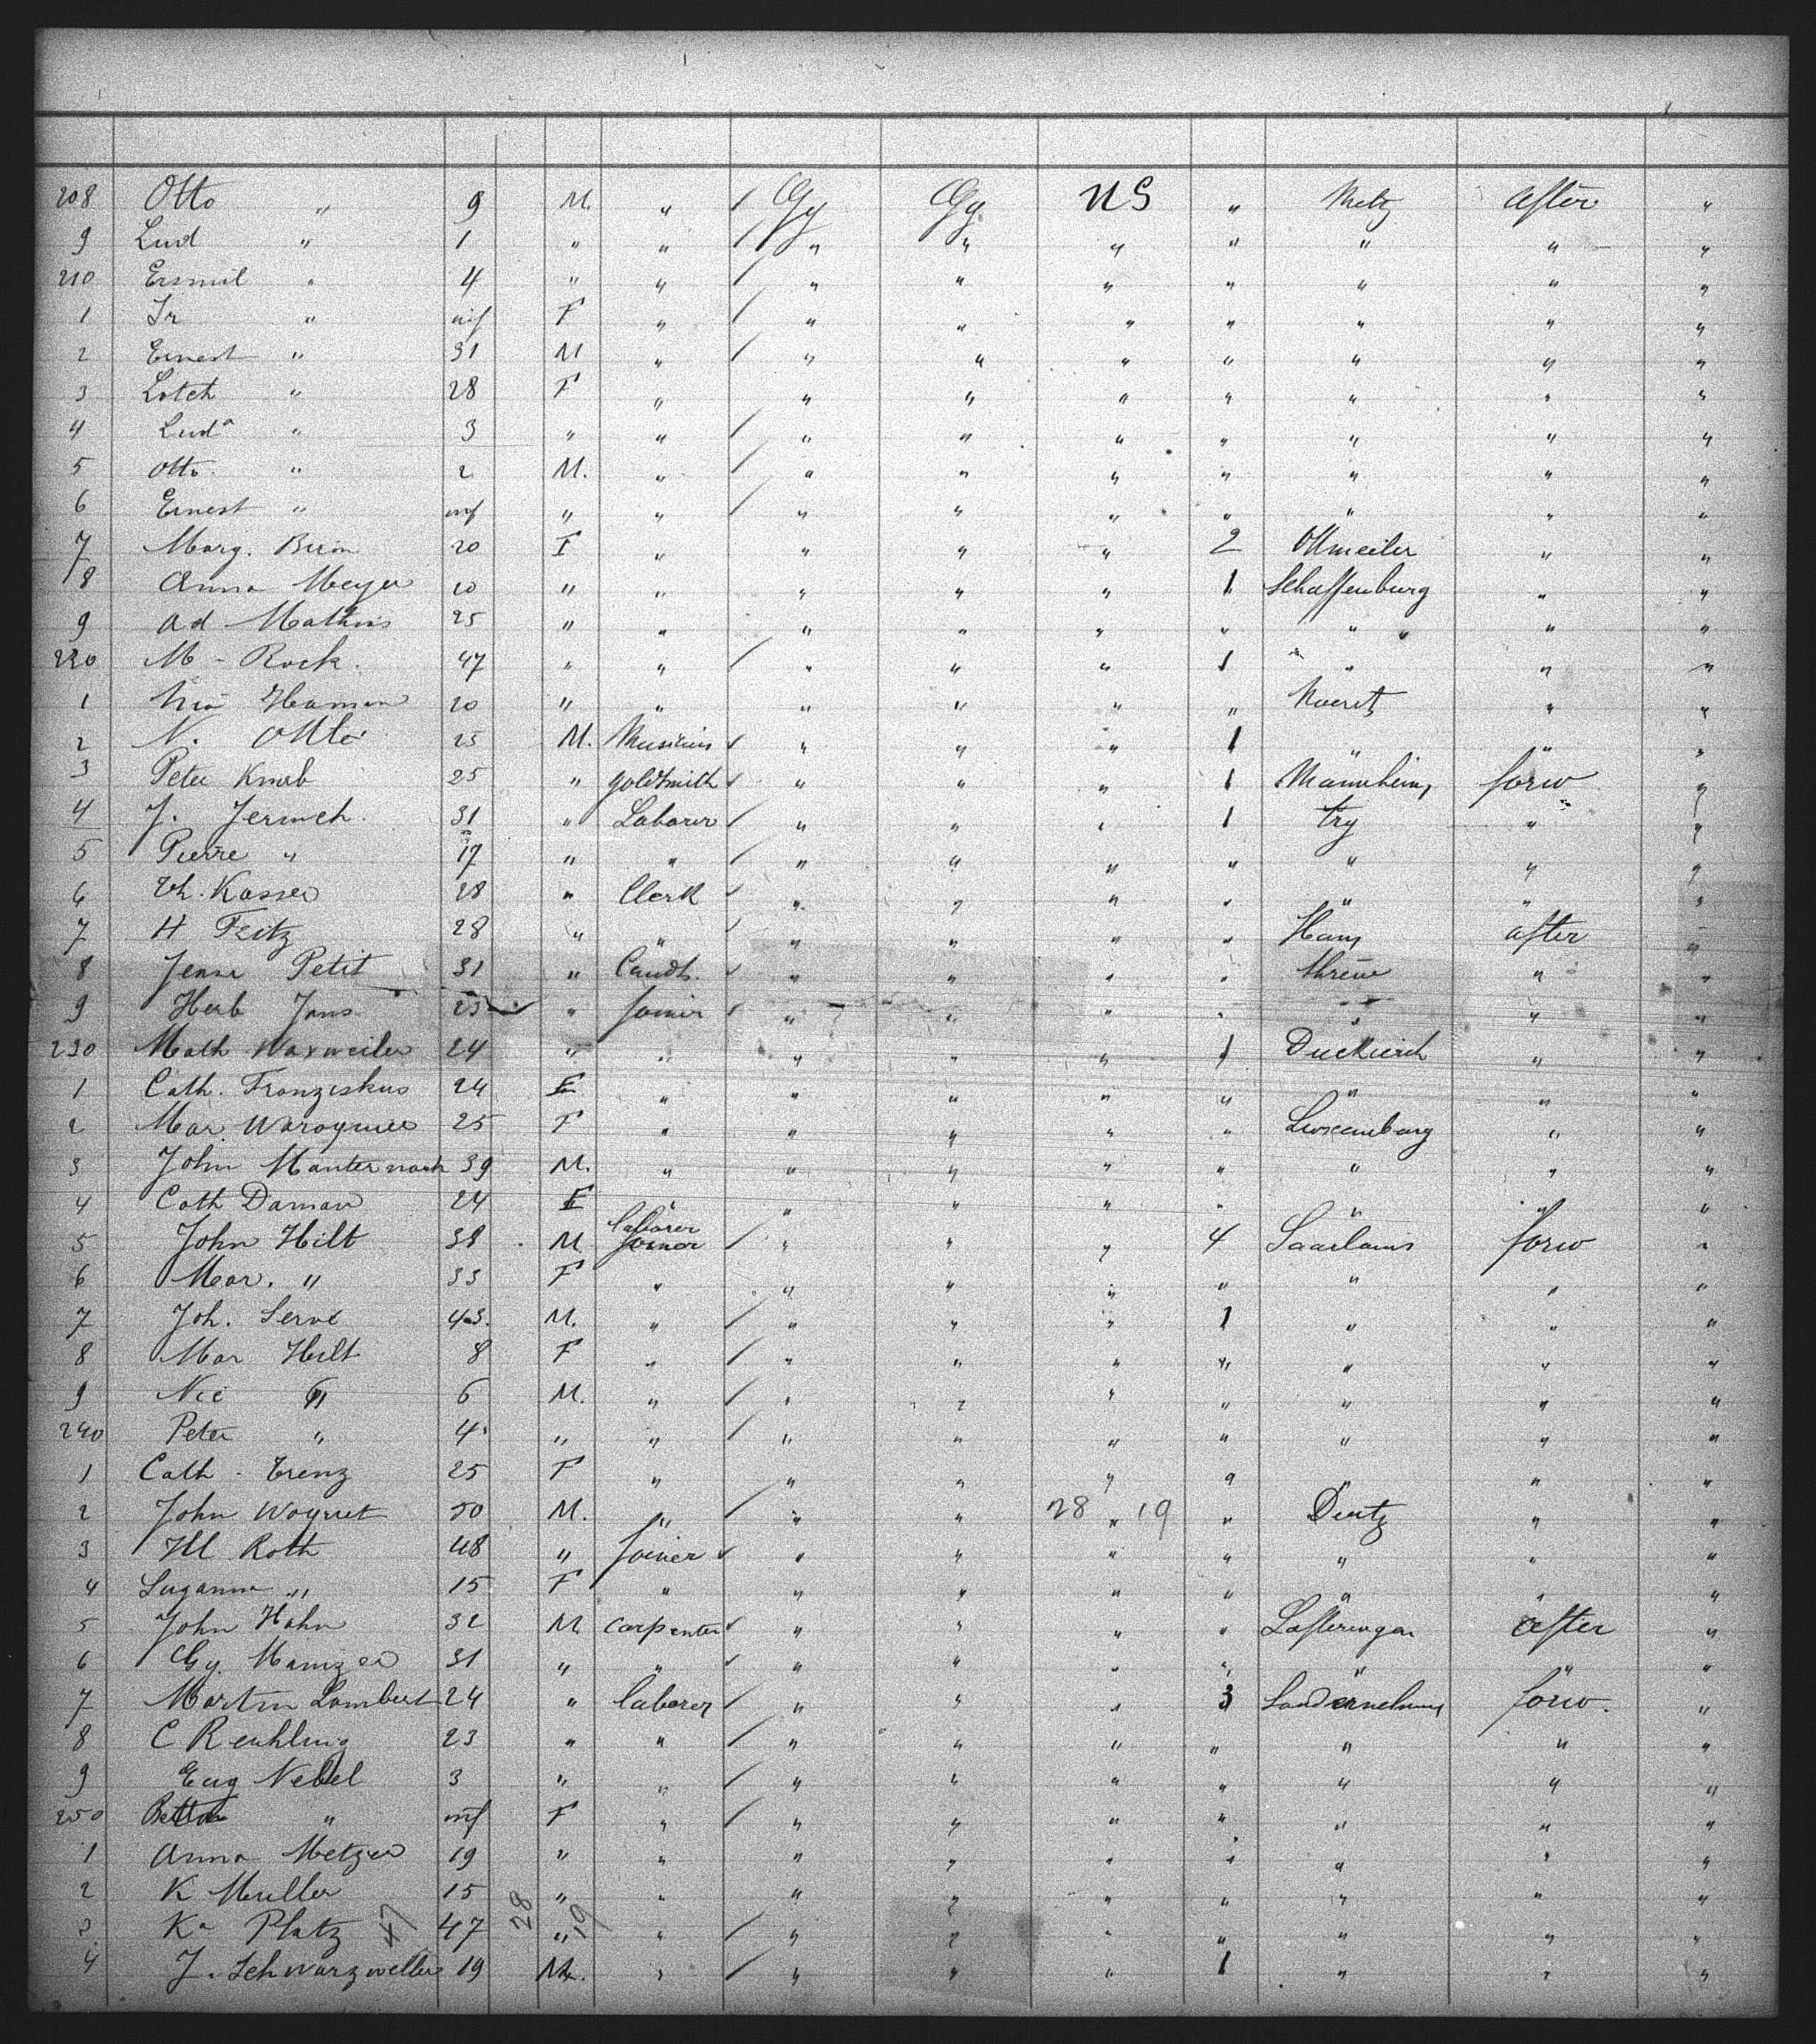 208 Otto " 9 M. " / Gy Gy US " Metz after "
9 Lud " 1 " " / " " " " " " "
210 Ersmil " 4 " " / " " " " " " "
1 Ir " inf F " / " " " " " " "
2 Ernest " 31 M " / " " " " " " "
3 Loteh " 28 F " " " " " " " "
4 Luda " 3 " " / " " " " " " "
5 Otto " 2 M. " / " " " " " " "
6 Ernest " inf " " / " " " " " " "
7 Marg. 20 F " " " " 2 Ottweiler " "
8 Anna Meyer 20 " " " " " 1 Schaffenburg " "
9 Ad Mathis 25 " " " " " " " " "
220 M - Rock. 47 " " / " " " 1 " " "
1 Haman 20 " " " " " " " "
2 N. Otto 25 M. / " " " 1 " " "
3 Peter Knab 25 " goldsmith / " " " 1 Mannheim forw "
4 J. 31 " Laborer / " " " 1 try " "
5 Pierre " 17 " " / " " " " " " "
6 Kasser 28 " Clerk / " " " " " " "
7 H Fritz 28 " " / " " " " Ham after "
8 Petit 31 " / " " " " " "
9 Herb Jans 23 " Joiner / " " " " " " "
230 Math Waxweiler 24 " " " " " 1 " "
1 Cath. Franziskus 24 F " " " " " " " "
2 Mar. 25 F " " " " " Luxemburg " "
3 John Manternach 39 M. " " " " " " " "
4 Cath Daman 24 F " " " " " " " "
5 John Hilt 38 M laborer Joiner / " " " 4 Saarlouis forw "
6 Mar. " 33 F " " " " " " " "
7 Joh. Serve 43. M. " / " " " 1 " " "
8 Mar Hilt 8 F " / " " " " " " "
9 Nic " 6 M. " / " " " " " " "
240 Peter " 4 " " / " " " " " " "
1 Cath. Trenz 25 F " " " " " " " "
2 John 50 M. " / " " 28 " 19 " Deutz " "
3 Roth 48 " Joiner / " " " " " " "
4 Suzanna " 15 F " " " " " " " "
5 John Hahn 32 M Carpenter / " " " " after "
6 31 " " / " " " " " " "
7 Martin Lambert 24 " laborer / " " " 3 forw. "
8 C Reuhling 23 " " / " " " " " " "
9 Eug Nebel 3 " " / " " " " " " "
250 " inf F " / " " " " " " "
1 Anna Metzer 19 " " " " " " " " "
2 K Muller 15 " " " " " " " " "
3 Ka Platz 47 47 28 " 19 " / " " " " " " "
4 J. Schwarzweller 19 M. " / " " " 1 " " "